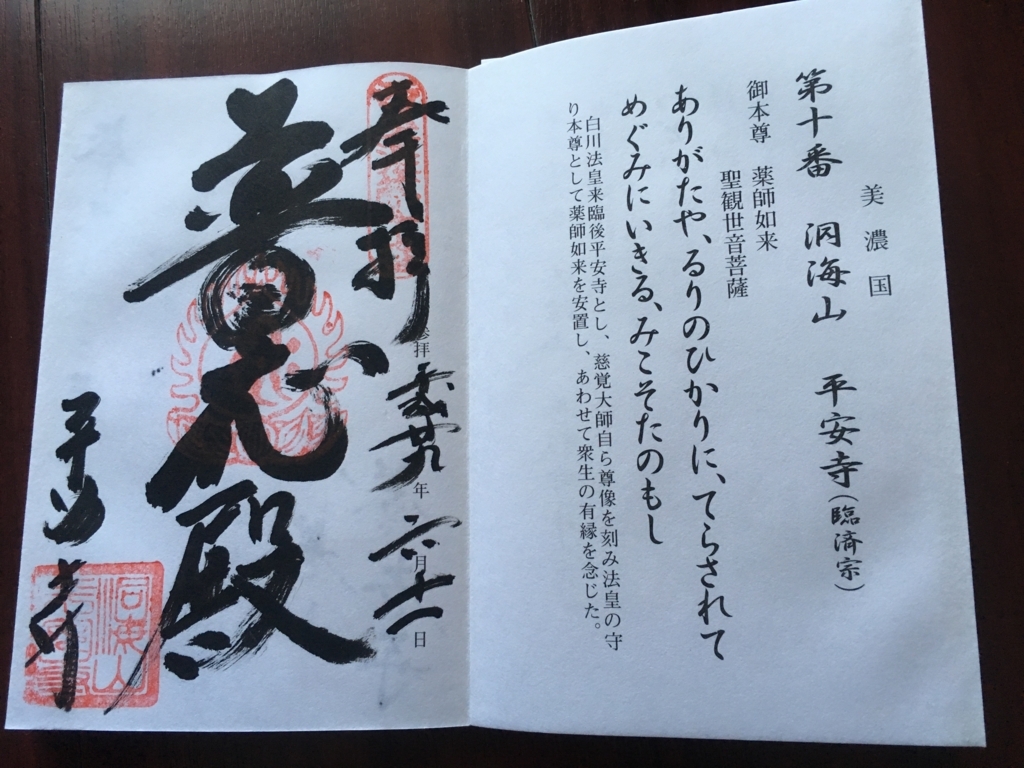 美濃国
第十番 洞海山 平安寺（臨済宗）
御本尊 薬師如来
聖観世音菩薩
ありがたや、るりのひかりに、てらされて
めぐみにいきる、みこそたのもし
白川法皇来臨後平安寺とし、慈覚大師自ら尊像を刻み法皇の守
り本尊として薬師如来を安置し、あわせて衆生の有縁を念じた。
奉拝
参拝 平成廿九年 六月十一日
普光殿
平安寺